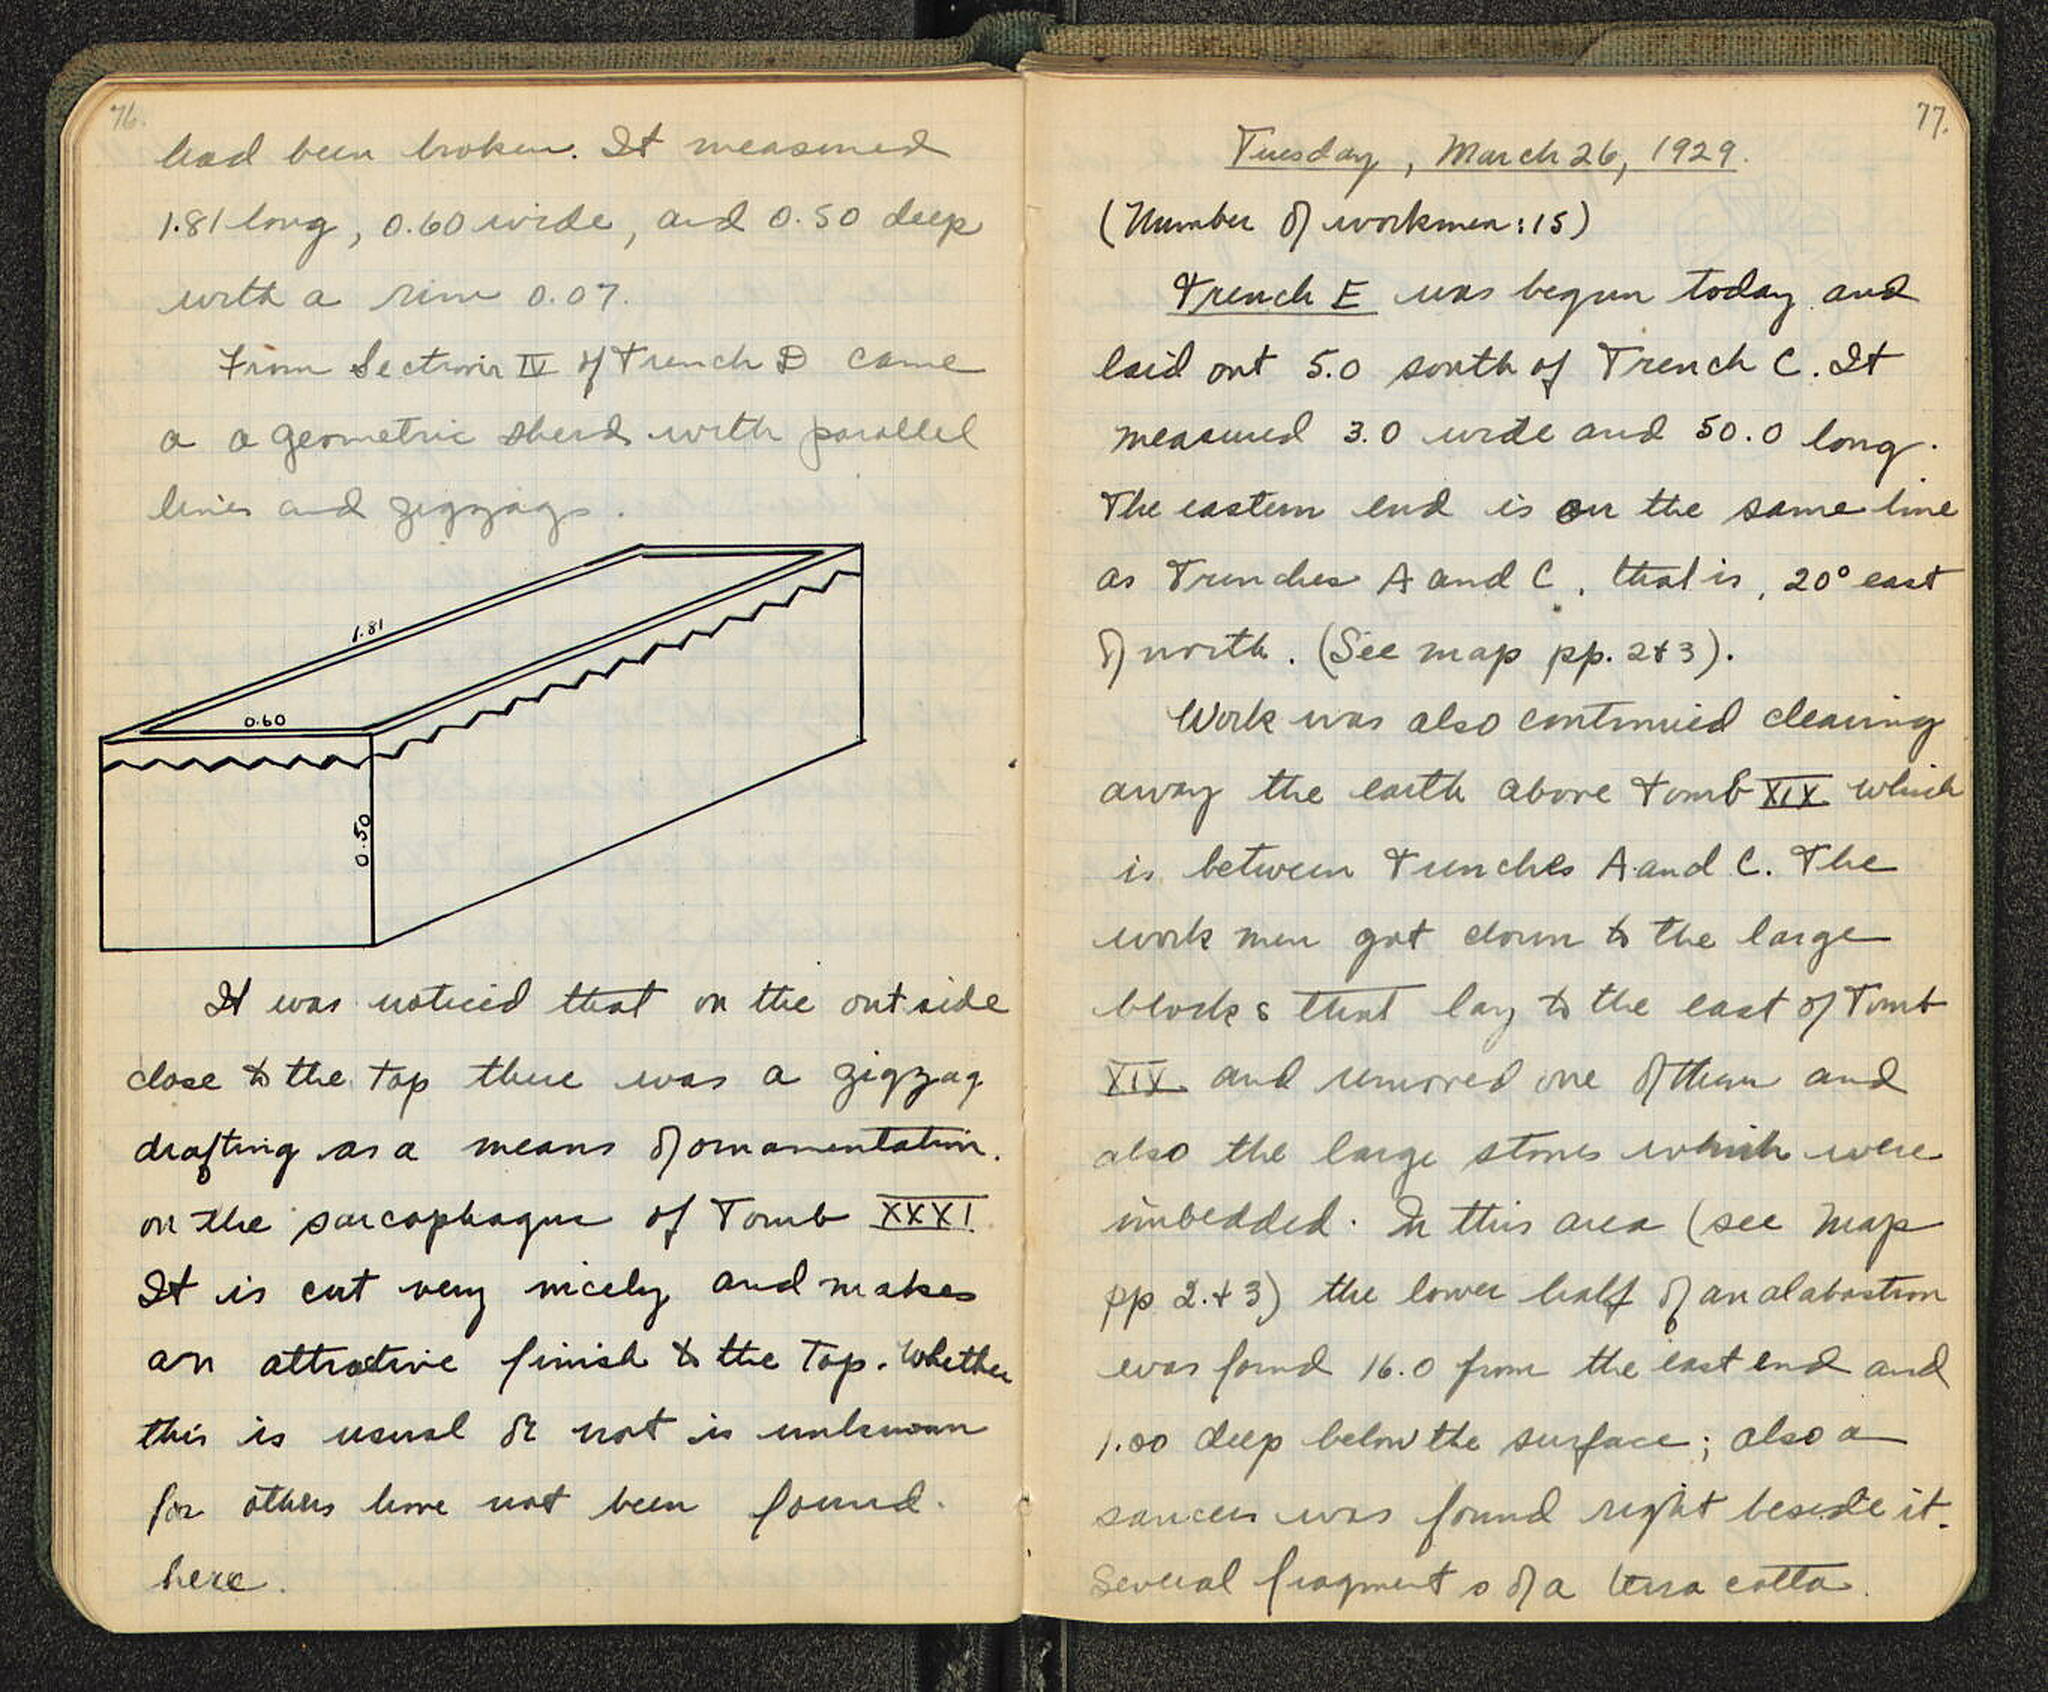 76.
had been broken. It measured
1.81 long, 0.60 wide, and 0.50 deep
with a rim 0.07.
From Section IV of Trench D came
a a geometric sherd with parallel
lines and zigzags.
1.81
0.60
0.50
It was noticed that on the outside
close to the top there was a zigzag
drafting as a means of ornamentation.
on the sarcophagus of Tomb XXXI.
It is cut very nicely and makes
an attractive finish to the top. Whether
this is usual or not is unknown
for others have not been found.
here.
77.
Tuesday, March 26, 1929.
(Number of workmen: 15)
Trench E was begun today and
laid out 5.0 south of Trench C. It
measured 3.0 wide and 50.0 long.
The eastern end is on the same line
as Trenches A and C, that is, 20° east
of north. (See map pp. 2+3).
Work was also continued clearing
away the earth above Tomb XIX which
is between Trenches A and C. The
work men got down to the large
blocks that lay to the east of Tomb
XIV and removed one of them and
also the large stones which were
imbedded. In this area (see map
pp 2.+3) the lower half of an alabastron
was found 16.0 from the east end and
1.00 deep below the surface; also a
saucer was found right beside it.
Several fragments of a terra cotta